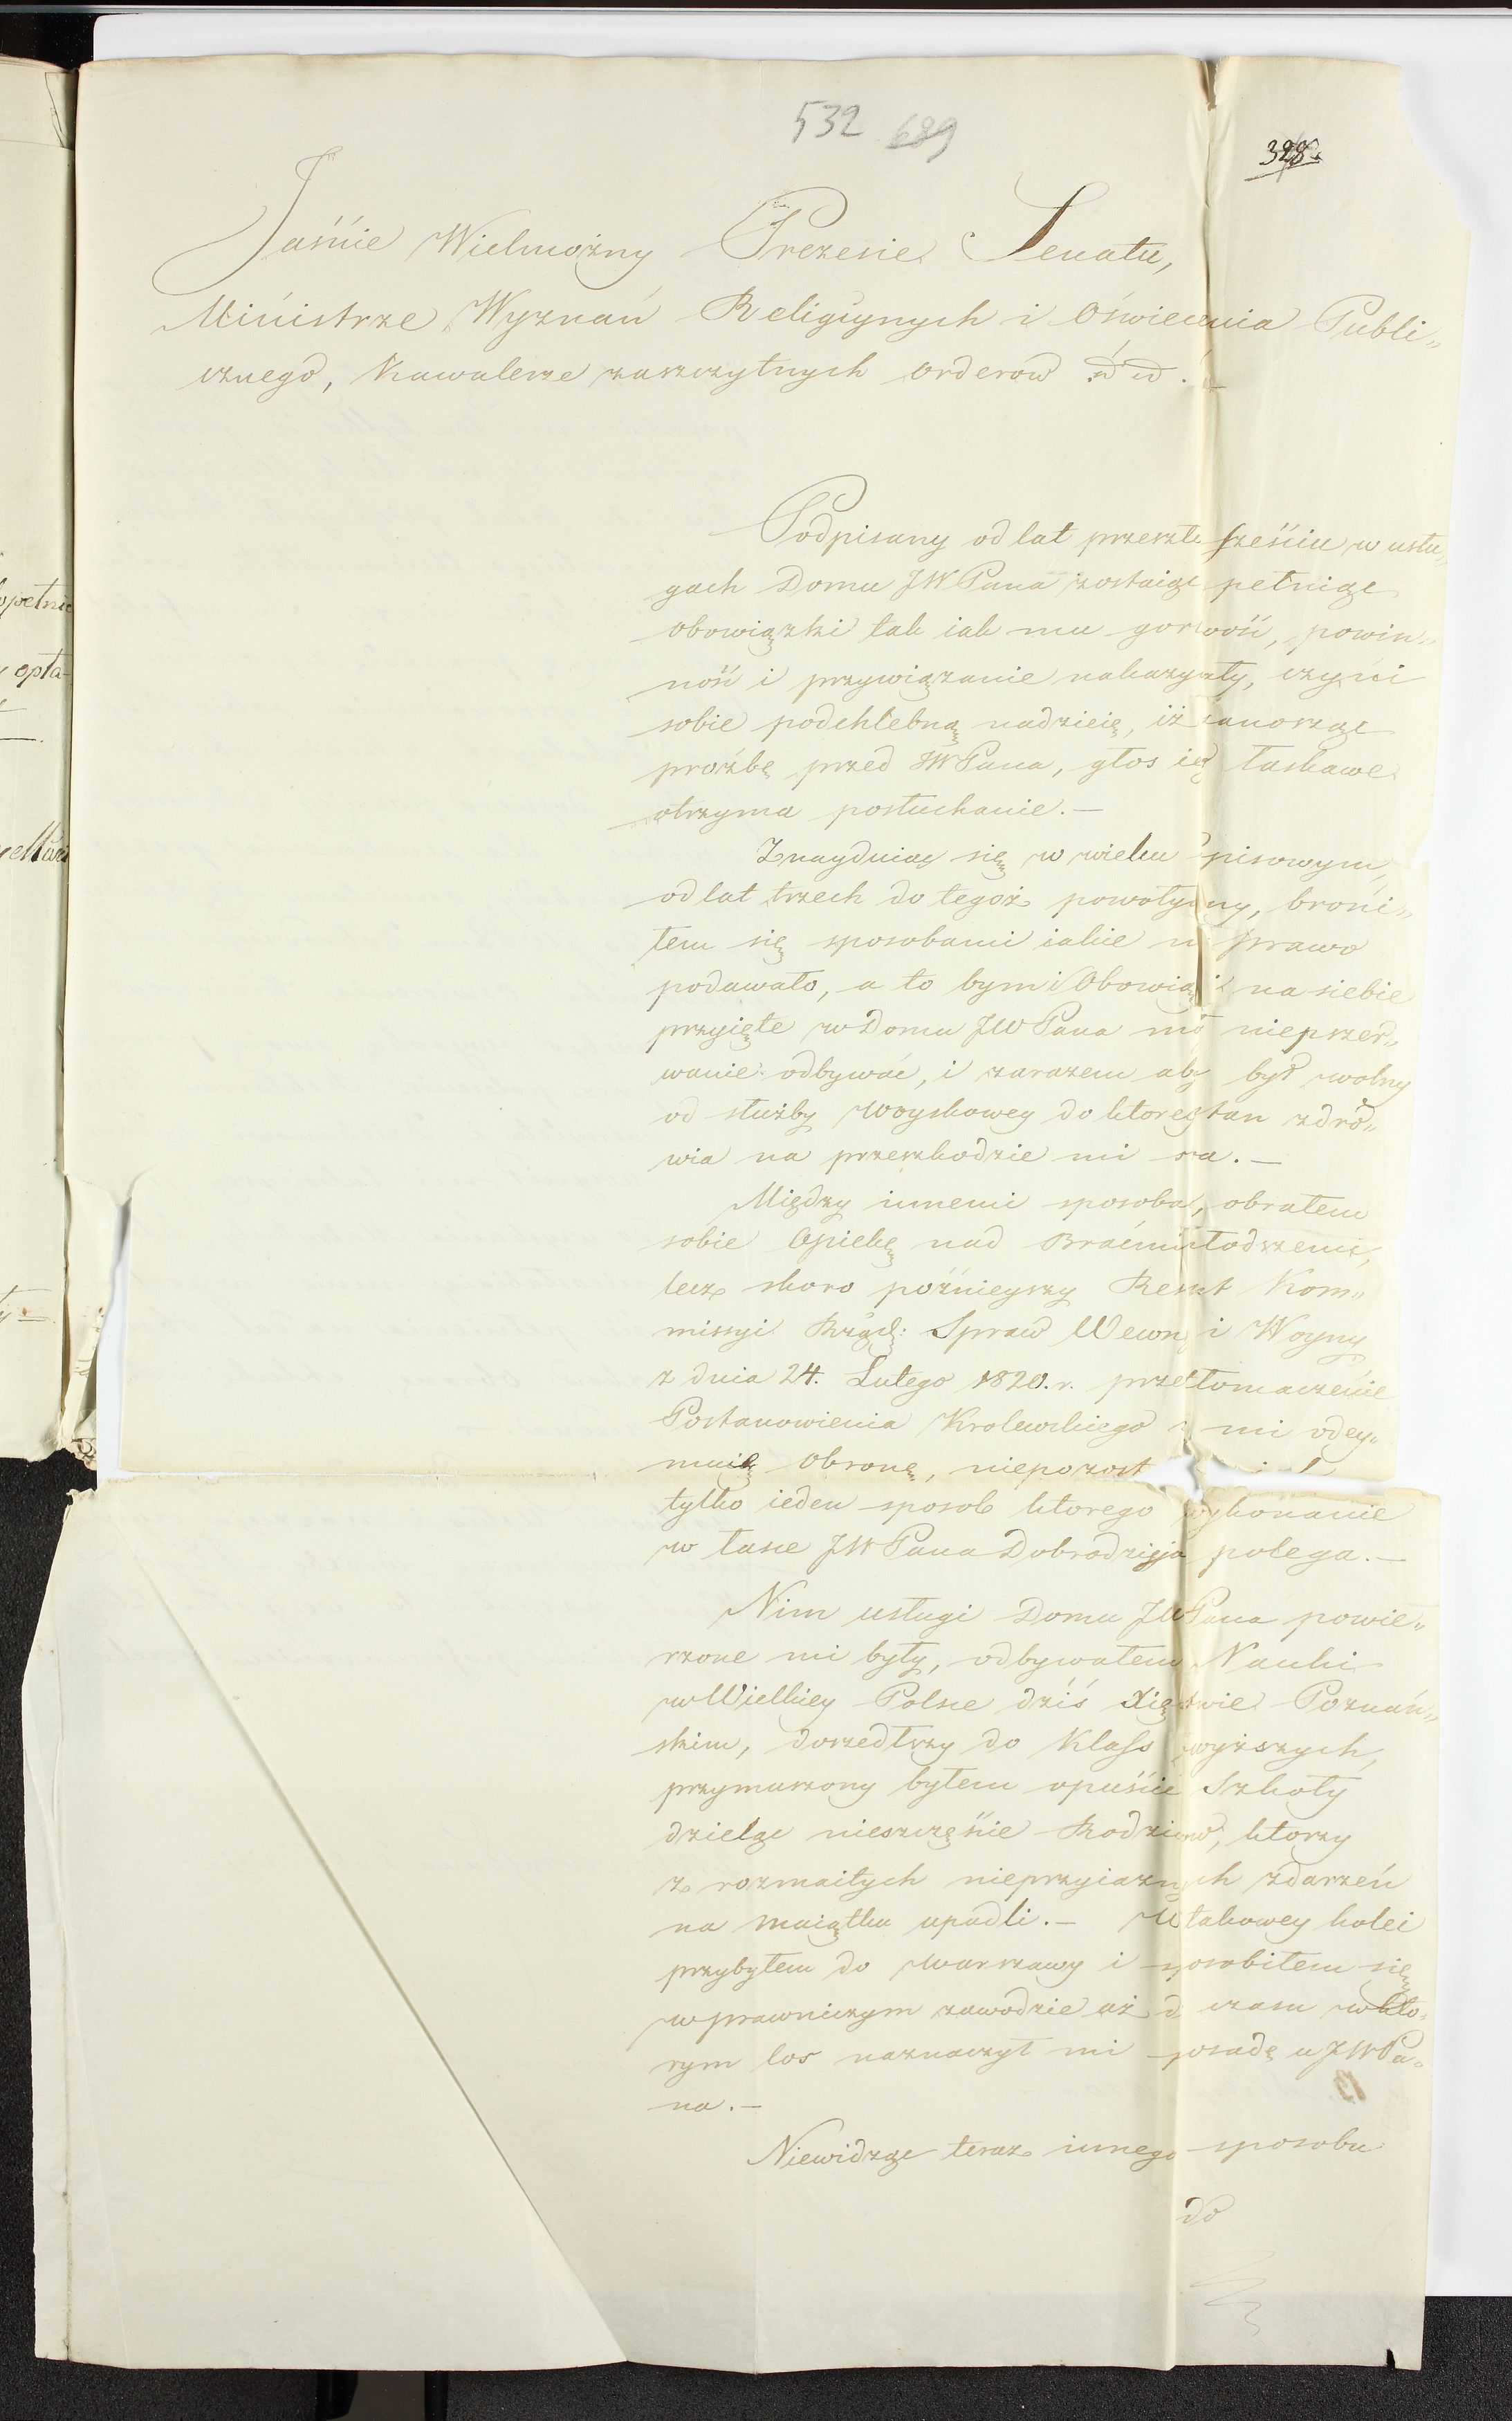 532 689
328.
Jaśnie Wielmożny Prezesie Senatu,
Ministrze Wyznań Religiynych i Oświecenia Publi„
cznego, Kawalerze zaszczytnych Orderów
Podpisany od lat przeszło sześciu w usłu„
gach Domu JWPana zostaiąc pełniąc
obowiązki tak iak mu gorliwość, powin„
ność i przywiązanie nakazywały, czyni
sobie podchlebną nadzieię, iż zanosząc
prozbę przed JWPana, głos iey łaskawe
otrzyma posłuchanie.—
Znayduiąc się w wieku Spisowym,
od lat trzech do tegoż powoływany, broni„
łem się sposobami iakie mi prawo
podawało, a to bym Obowiązki na siebie
przyięte w Domu JWPana mógł nieprzer„
wanie odbywać, i zarazem abym był wolny
od służby Woyskowey do ktorey stan zdro„
wia na przeszkodzie mi sta.—
Między innemi sposobami, obrałem
sobie Opiekę nad Braćmi młodszemi,
lecz skoro poźnieyszy Reskrypt Kom„
missyi Rząd: Spraw Wewn: i Woyny
z dnia 24. Lutego 1820. r. przez tłomaczenie
Postanowienia Krolewskiego mi odey„
muię obronę, niepozost
tylko ieden sposob ktorego wykonanie
w łasce JWPana Dobrodzieja polega.—
Nim usługi Domu JWPana powie„
rzone mi były, odbywałem Nauki
w Wielkiey Polsce dziś Xięstwie Poznań„
skim, doszedłszy do Klass wyższych,
przymuszony byłem opuście Szkoły
dzieląc nieszczęście Rodziców, ktorzy
z rozmaitych nieprzyiaznych zdarzeń
na maiątku upadli.— W takowey kolei
przybyłem do Warszawy i sposobiłem się
w prawniczym zawodzie aż do czasu w kto„
rym los naznaczył mi posadę u JWPa„
na.—
Niewidząc teraz innego sposobu
do